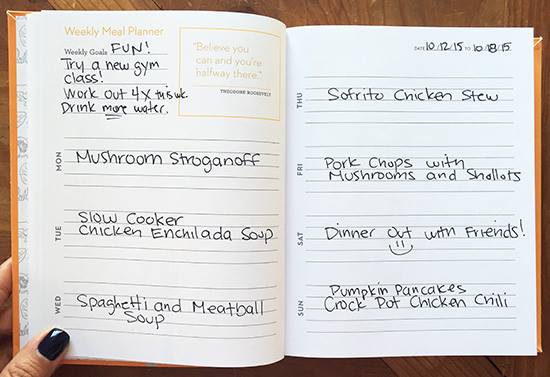 Weekly Meal Planner
Weekly Goals FUN!
Try a new gym
class!
Work out 4x this wk.
Drink more water.
"Believe you
can and you're
halfway there."
THEODORE ROOSEVELT
MON
Mushroom Stroganoff
TUE
Slow Cooker
Chicken Enchilada Soup
WED
Spaghetti and Meatball
Soup
DATE 10/12/15 TO 10/18/15
THU
Sofrito Chicken Stew
FRI
Pork Chops with
Mushrooms and Shallots
SAT
Dinner Out with Friends!
SUN
Pumpkin Pancakes
Crock Pot Chicken Chili